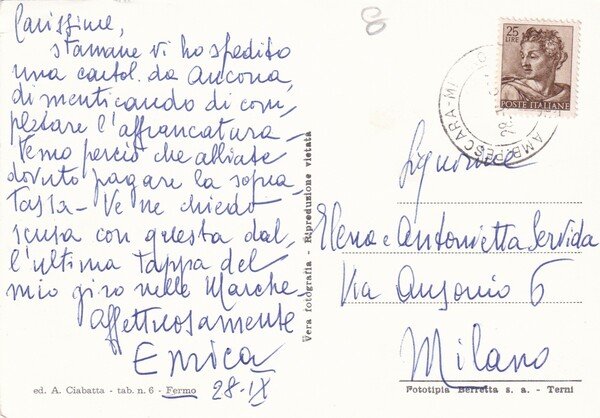 Carissime,
stamane vi ho spedito
una cartol. da Ancona,
dimenticando di com-
pletare l'affrancatura -
Temo perciò che abbiate
dovuto pagare la sopra-
tassa - Ve ne chiedo
scusa con questa dal-
l'ultima tappa del
mio giro nelle Marche
Affettuosamente
Enrica
28-IX
ed. A. Ciabatta - tab. n. 6 - Fermo
Vera fotografia - Riproduzione vietata
25
LIRE
POSTE ITALIANE
AMB. PESCARA-MI
Signorine
Elena e Antonietta Servida
Via Ausonio 6
Milano
Fototipia Berretta s. a. - Terni